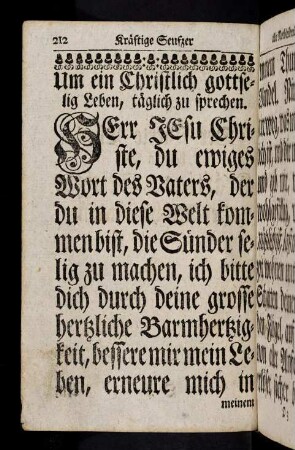 212 Kräfftige Seufzer
Um ein Christlich gottse-
lig Leben, täglich zu sprechen.
HErr JEsu Chri-
ste, du ewiges
Wort des Vaters, der
du in diese Welt kom-
men bist, die Sünder se-
lig zu machen, ich bitte
dich durch deine grosse
hertzliche Barmhertzig-
keit, bessere mir mein Le-
ben, erneure mich in
meinem